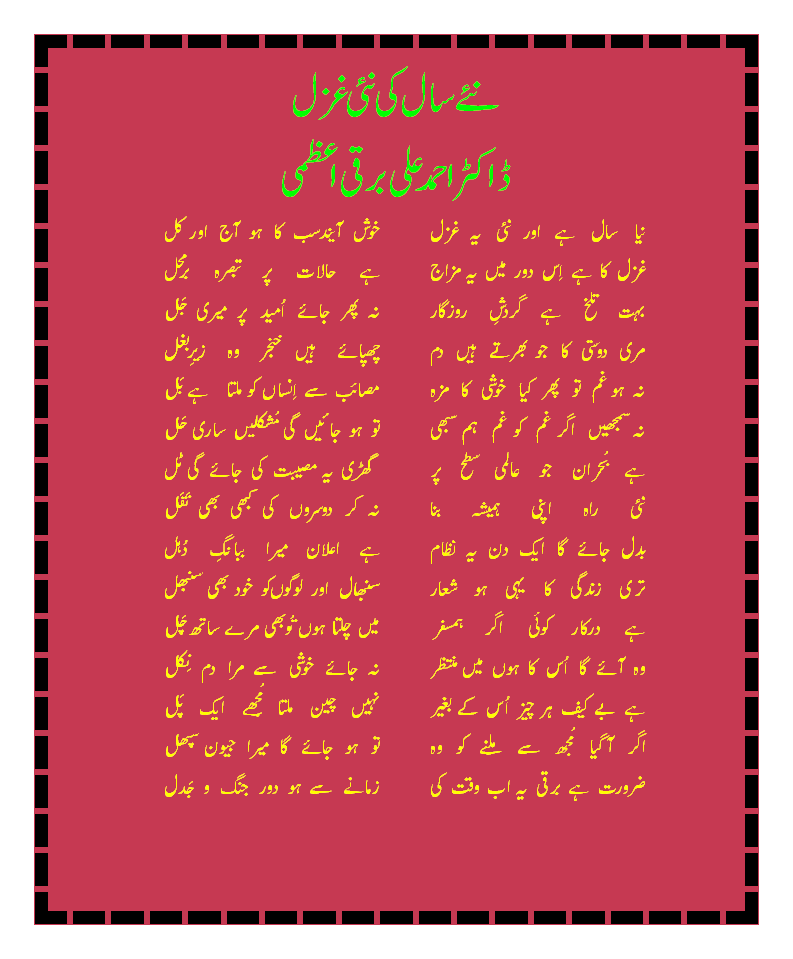 نئے سال کی نئی غزل
ڈاکٹر احمد علی برقی اعظمی
نیا سال ہے اور نئی یہ غزل خوش آیندسب کا ہو آج اور کل
غزل کا ہے اِس دور میں یہ مزاج ہے حالات پر تبصرہ برمحل
بہت تلخ ہے گردشِ روزگار نہ پھر جائے اُمید پر میری جَل
مری دوستی کا جو بھرتے ہیں دم چھپائے ہیں خنجر وہ زیرِبغل
نہ ہو غم تو پھر کیا خوشی کا مزہ مصائب سے اِنساں کو ملتا ہے بَل
نہ سمجھیں اگر غم کو غم ہم سبھی تو ہو جائیں گی مُشکلیں ساری حَل
ہے بُحران جو عالمی سطح پر گھڑی یہ مصیبت کی جائے گی ٹَل
نئی راہ اپنی ہمیشہ بنا نہ کر دوسروں کی کبھی بھی نَقَل
بدل جائے گا ایک دن یہ نظام ہے اعلان میرا ببانگِ دُہل
تری زندگی کا یہی ہو شعار سنبھال اور لوگوں کو خود بھی سنبھل
ہے درکار کوئی اگر ہمسفر میں چلتا ہوں تُوبھی مرے ساتھ چَل
وہ آئے گا اُس کا ہوں میں منتظر نہ جائے خوشی سے مرا دم نِکل
ہے بے کیف ہر چیز اُس کے بغیر نہیں چین ملتا مُجھے ایک پَل
اگر آ گیا مُجھ سے ملنے کو وہ تو ہو جائے گا میرا جیون سپھل
ضرورت ہے برقی یہ اب وقت کی زمانے سے ہو دور جنگ و جَدل